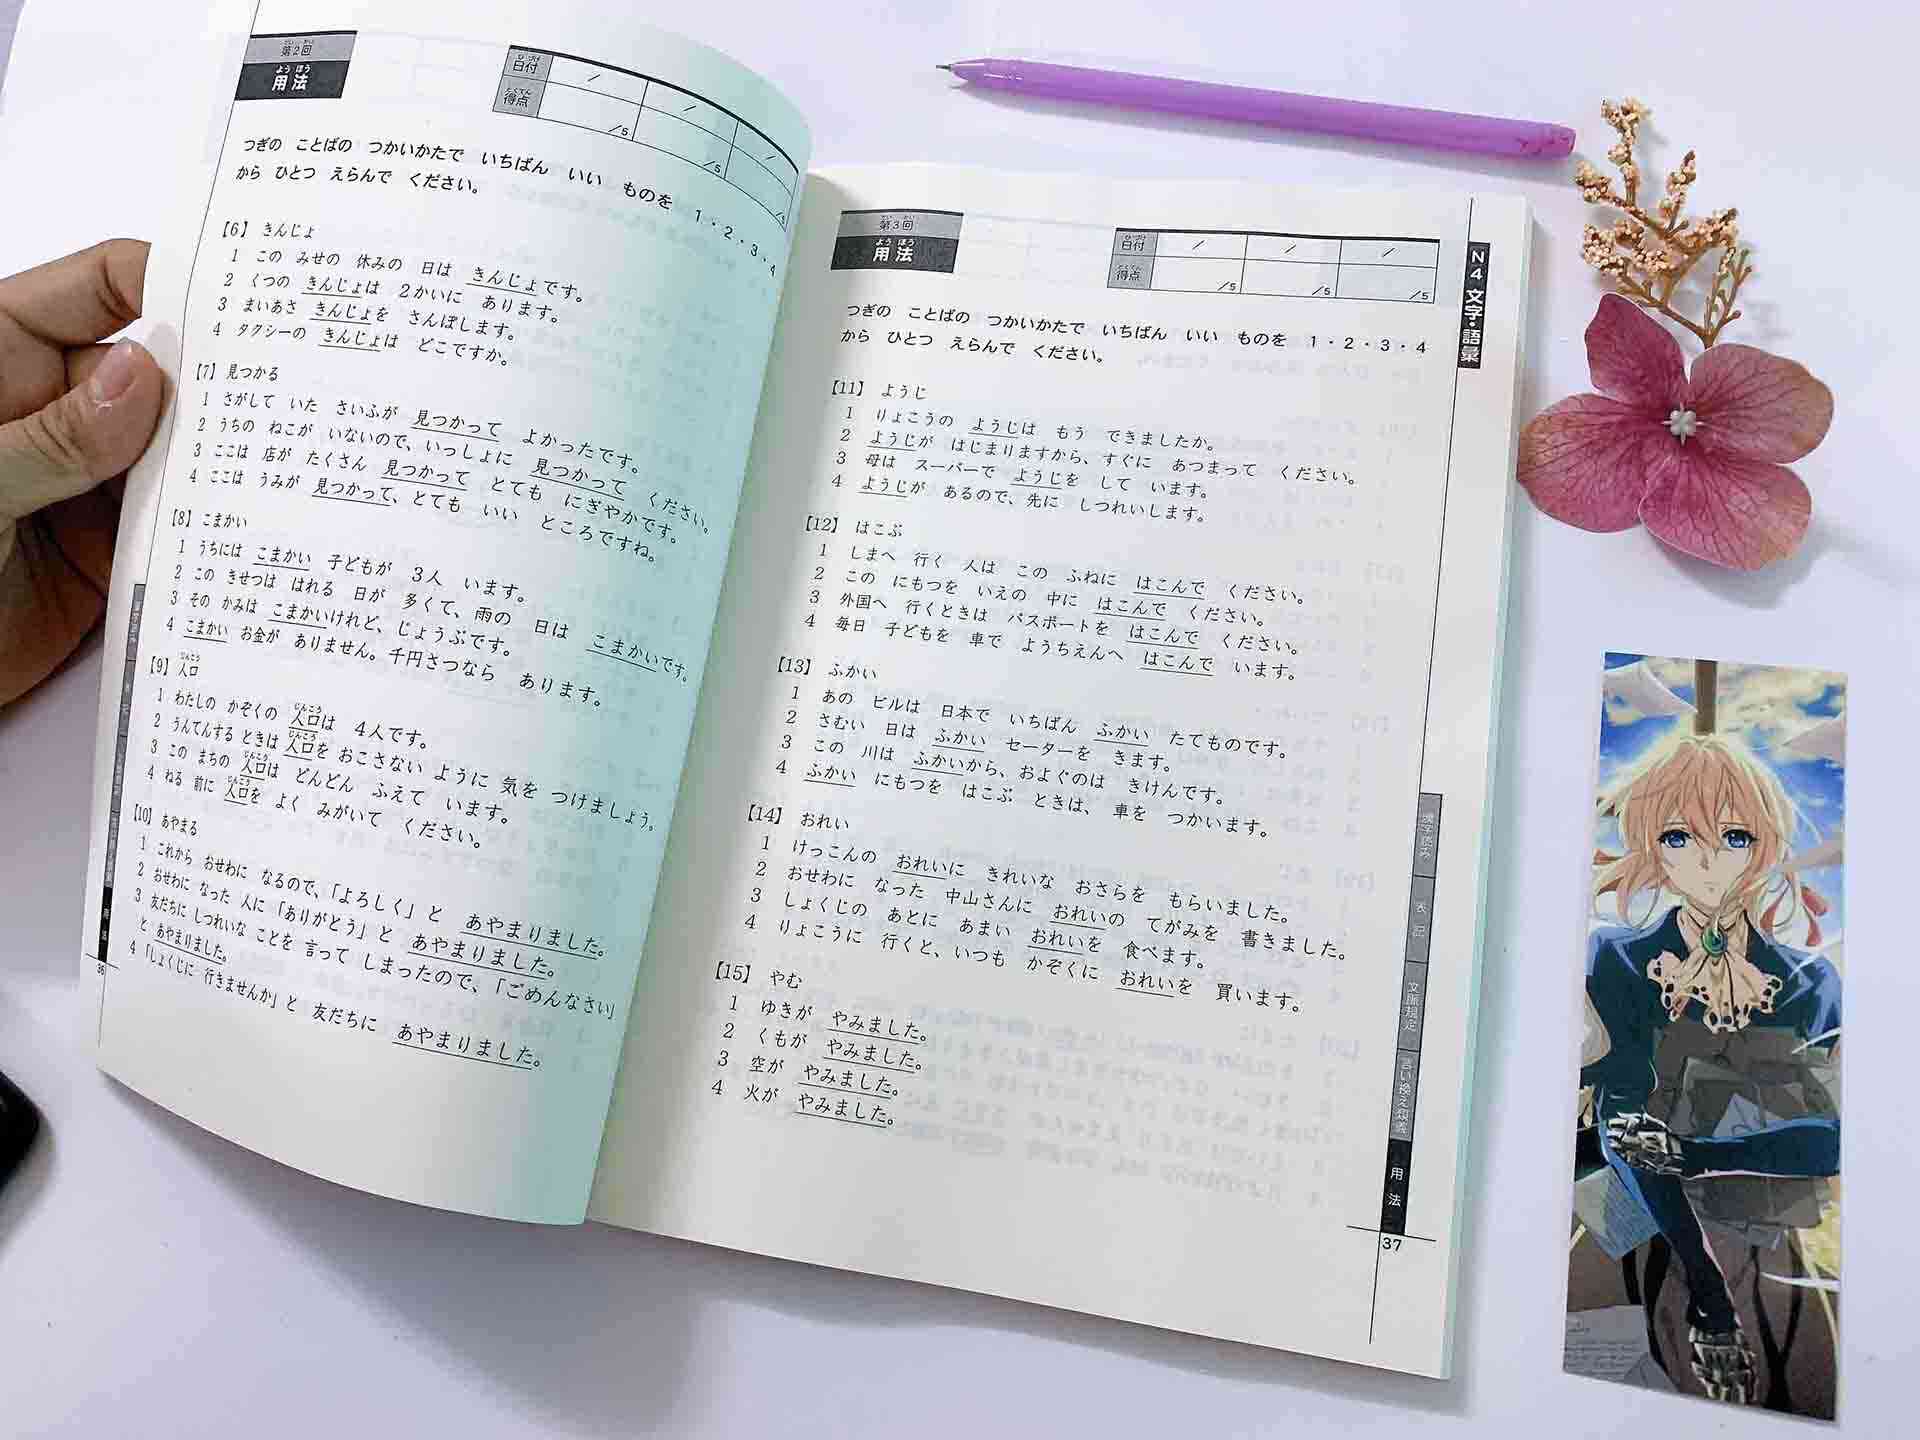 第2回
用法
日付 / / /
得点 /5 /5 /5
つぎの ことばの つかいかたで いちばん いい ものを 1・2・3・4
から ひとつ えらんで ください。
【6】 きんじょ
1 この みせの 休みの 日は きんじょです。
2 くつの きんじょは 2かいに あります。
3 まいあさ きんじょを さんぽします。
4 タクシーの きんじょは どこですか。
【7】 見つかる
1 さがして いた さいふが 見つかって よかったです。
2 うちの ねこが いないので、いっしょに 見つかって ください。
3 ここは 店が たくさん 見つかって とても にぎやかです。
4 ここは うみが 見つかって、とても いい ところですね。
【8】 こまかい
1 うちには こまかい 子どもが 3人 います。
2 この きせつは はれる 日が 多くて、雨の 日は こまかいです。
3 その かみは こまかいけれど、じょうぶです。
4 こまかい お金が ありません。千円さつなら あります。
【9】 人口
1 わたしの かぞくの 人口は 4人です。
2 うんてんする ときは 人口を おこさない ように 気を つけましょう。
3 この まちの 人口は どんどん ふえて います。
4 ねる 前に 人口を よく みがいて ください。
【10】 あやまる
1 これから おせわに なるので、「よろしく」と あやまりました。
2 おせわに なった 人に 「ありがとう」と あやまりました。
3 友だちに しつれいな ことを 言って しまったので、「ごめんなさい」
と あやまりました。
4 「しょくじに 行きませんか」と 友だちに あやまりました。
用法
36
第3回
用法
日付 / / /
得点 /5 /5 /5
つぎの ことばの つかいかたで いちばん いい ものを 1・2・3・4
から ひとつ えらんで ください。
【11】 ようじ
1 りょこうの ようじは もう できましたか。
2 ようじが はじまりますから、すぐに あつまって ください。
3 母は スーパーで ようじを して います。
4 ようじが あるので、先に しつれいします。
【12】 はこぶ
1 しまへ 行く 人は この ふねに はこんで ください。
2 この にもつを いえの 中に はこんで ください。
3 外国へ 行くときは パスポートを はこんで ください。
4 毎日 子どもを 車で ようちえんへ はこんで います。
【13】 ふかい
1 あの ビルは 日本で いちばん ふかい たてものです。
2 さむい 日は ふかい セーターを きます。
3 この 川は ふかいから、およぐのは きけんです。
4 ふかい にもつを はこぶ ときは、車を つかいます。
【14】 おれい
1 けっこんの おれいに きれいな おさらを もらいました。
2 おせわに なった 中山さんに おれいの てがみを 書きました。
3 しょくじの あとに あまい おれいを 食べます。
4 りょこうに 行くと、いつも かぞくに おれいを 買います。
【15】 やむ
1 ゆきが やみました。
2 くもが やみました。
3 空が やみました。
4 火が やみました。
N4 文字・語彙
漢字読み
表記
文脈規定
言い換え類義
用法
37